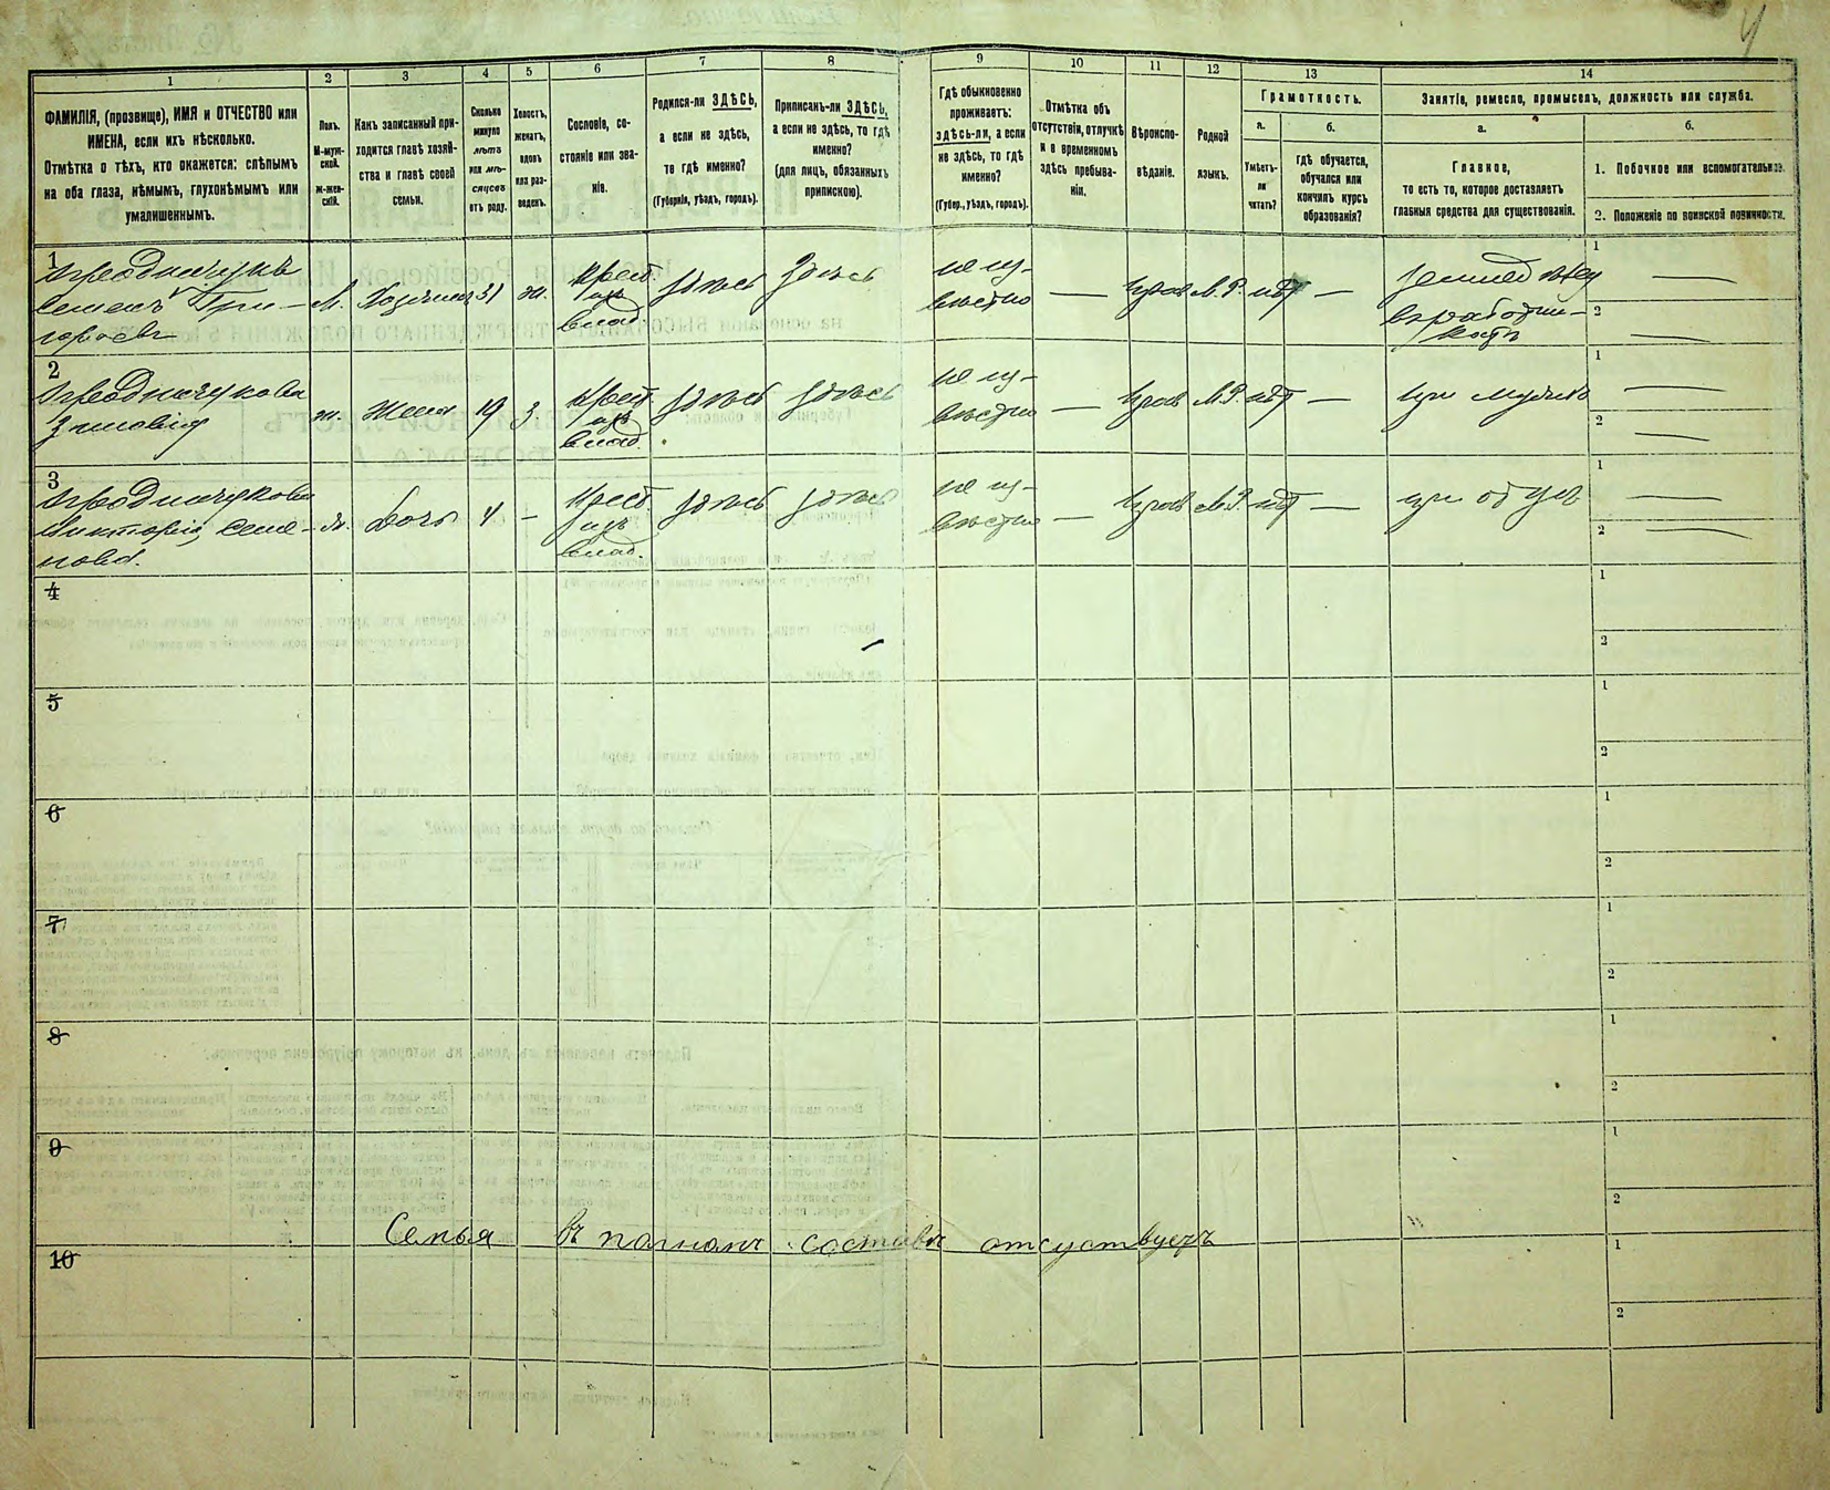 1 2 3 4 5 6 7 8 9 10 11 12 13 14
ФАМИЛІЯ, (прозвище), ИМЯ и ОТЧЕСТВО или
ИМЕНА, если ихъ нѣсколько.
Отмѣтка о тѣхъ, кто окажется: слѣпымъ
на оба глаза, нѣмымъ, глухонѣмымъ или
умалишеннымъ.
Полъ.
М-муж-
ской.
Ж-жен-
скій.
Какъ записанный при-
ходится главѣ хозяй-
ства и главѣ своей
семьи.
Сколько
минуло
лѣтъ
или мѣ-
сяцевъ
отъ роду.
Холостъ,
женатъ,
вдовъ
или раз-
веденъ.
Сословіе, со-
стояніе или зва-
ніе.
Родился-ли ЗДѢСЬ,
а если не здѣсь,
то гдѣ именно?
(Губернія, уѣздъ, городъ).
Приписанъ-ли ЗДѢСЬ,
а если не здѣсь, то гдѣ
именно?
(для лицъ, обязанныхъ
припискою).
Гдѣ обыкновенно
проживаетъ:
здѣсь-ли, а если
не здѣсь, то гдѣ
именно?
(Губер., уѣздъ, городъ).
Отмѣтка объ
отсутствіи, отлучкѣ
и о временномъ
здѣсь пребыва-
ніи.
Вѣроиспо-
вѣданіе.
Родной
языкъ.
Грамотность.
а.
Умѣетъ-
ли
читать?
б.
гдѣ обучается,
обучался или
кончилъ курсъ
образованія?
Занятіе, ремесло, промыселъ, должность или служба.
а.
Главное,
то есть то, которое доставляетъ
главныя средства для существованія.
б.
1. Побочное или вспомогательное.
2. Положеніе по воинской повинности.
1
Семенъ Гри-
горьевъ
М. Хозяинъ 31 ж.
Крест.
изъ
влад.
здѣсь здѣсь
не из-
вѣстно
— прав М.Р. нѣт —
1 —
2 —
2
жена 19 з.
Крест.
изъ
влад.
здѣсь здѣсь
не из-
вѣстно
— прав М.Р. нѣт —
при мужѣ
1 —
2 —
3
Викторія Семе-
нова.
дочь 4 —
Крест.
изъ
влад.
здѣсь здѣсь
не из-
вѣстно
— прав М.Р. нѣт —
при отцѣ
1 —
2 —
4
1
2
5
1
2
6
1
2
7
1
2
8
1
2
9
1
2
Семья въ полномъ составѣ отсуствуетъ
10
1
2